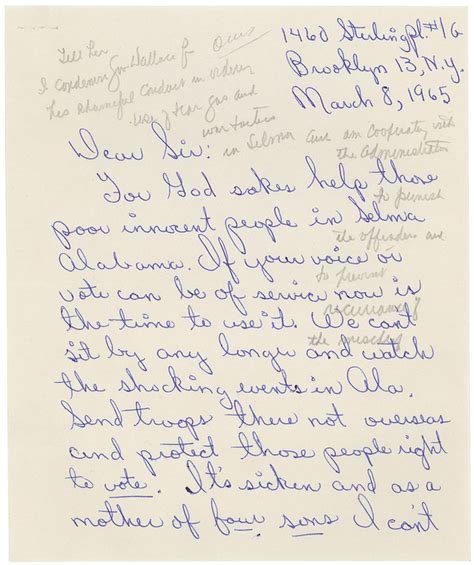 1460 Sterling Pl. #1G
Brooklyn 13, N.Y.
March 8, 1965
Tell her
I condemn Gov Wallace for
his shameful conduct in ordering
use of tear gas and
war tactics
in Selma and am cooperating with
the administration
to punish
the offenders and
to prevent
recurrence of
the misdeed
Dear Sir:
For God sakes help those
poor innocent people in Selma
Alabama. If your voice or
vote can be of service now is
the time to use it. We can't
sit by any longer and watch
the shocking events in Ala.
Send troops there not overseas
and protect those people right
to vote. It's sicken and as a
mother of four sons I can't